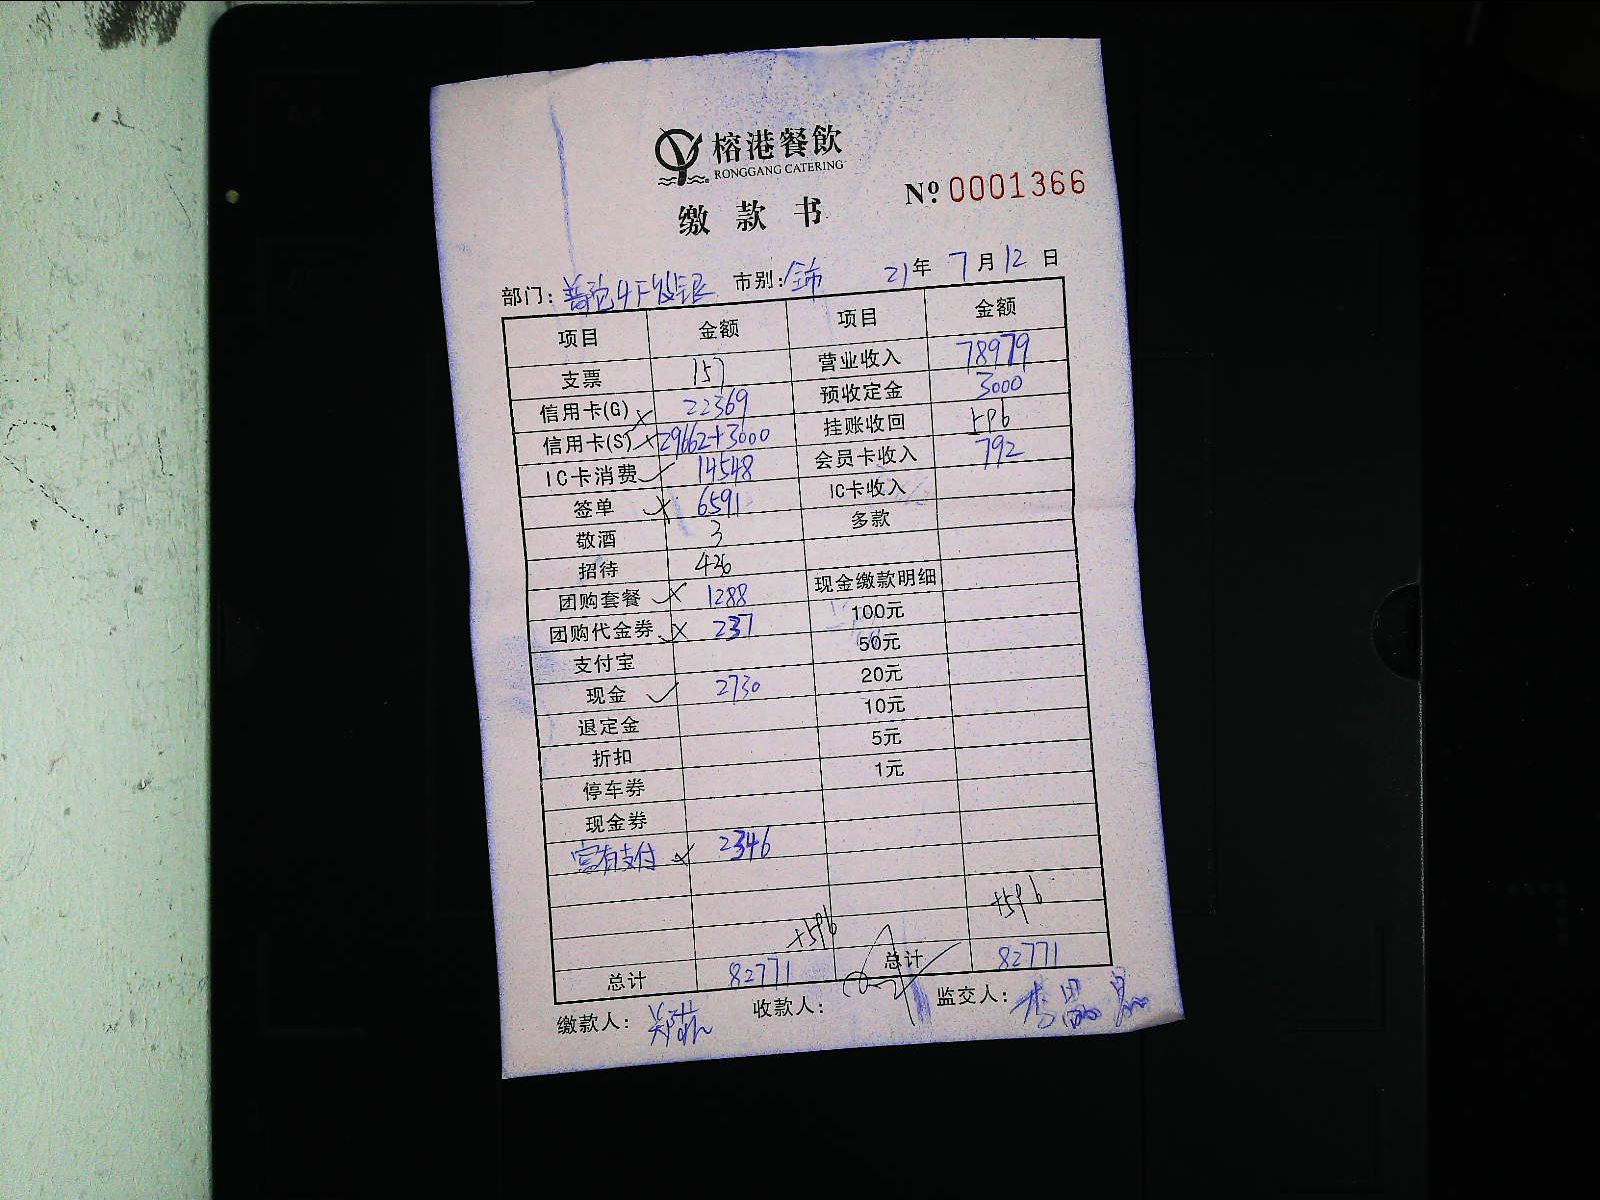 榕港餐飲
RONGGANG CATERING
缴款书 № 0001366
部门: 4F 收银 市别: 全市 21年 7月 12日
项目 金额 项目 金额
支票 157 营业收入 78979
信用卡(G) × 22369 预收定金 3000
信用卡(S) × 29662+3000 挂账收回
IC卡消费 ✓ 14548 会员卡收入 792
签单 × 6591 IC卡收入
敬酒 3 多款
招待 426
团购套餐 × 1288 现金缴款明细
团购代金券 × 237 100元
支付宝 50元
现金 ✓ 2730 20元
退定金 10元
折扣 5元
停车券 1元
现金券
富有支付 × 2346
+596 +596
总计 82771 总计 82771
缴款人: 收款人: 监交人: